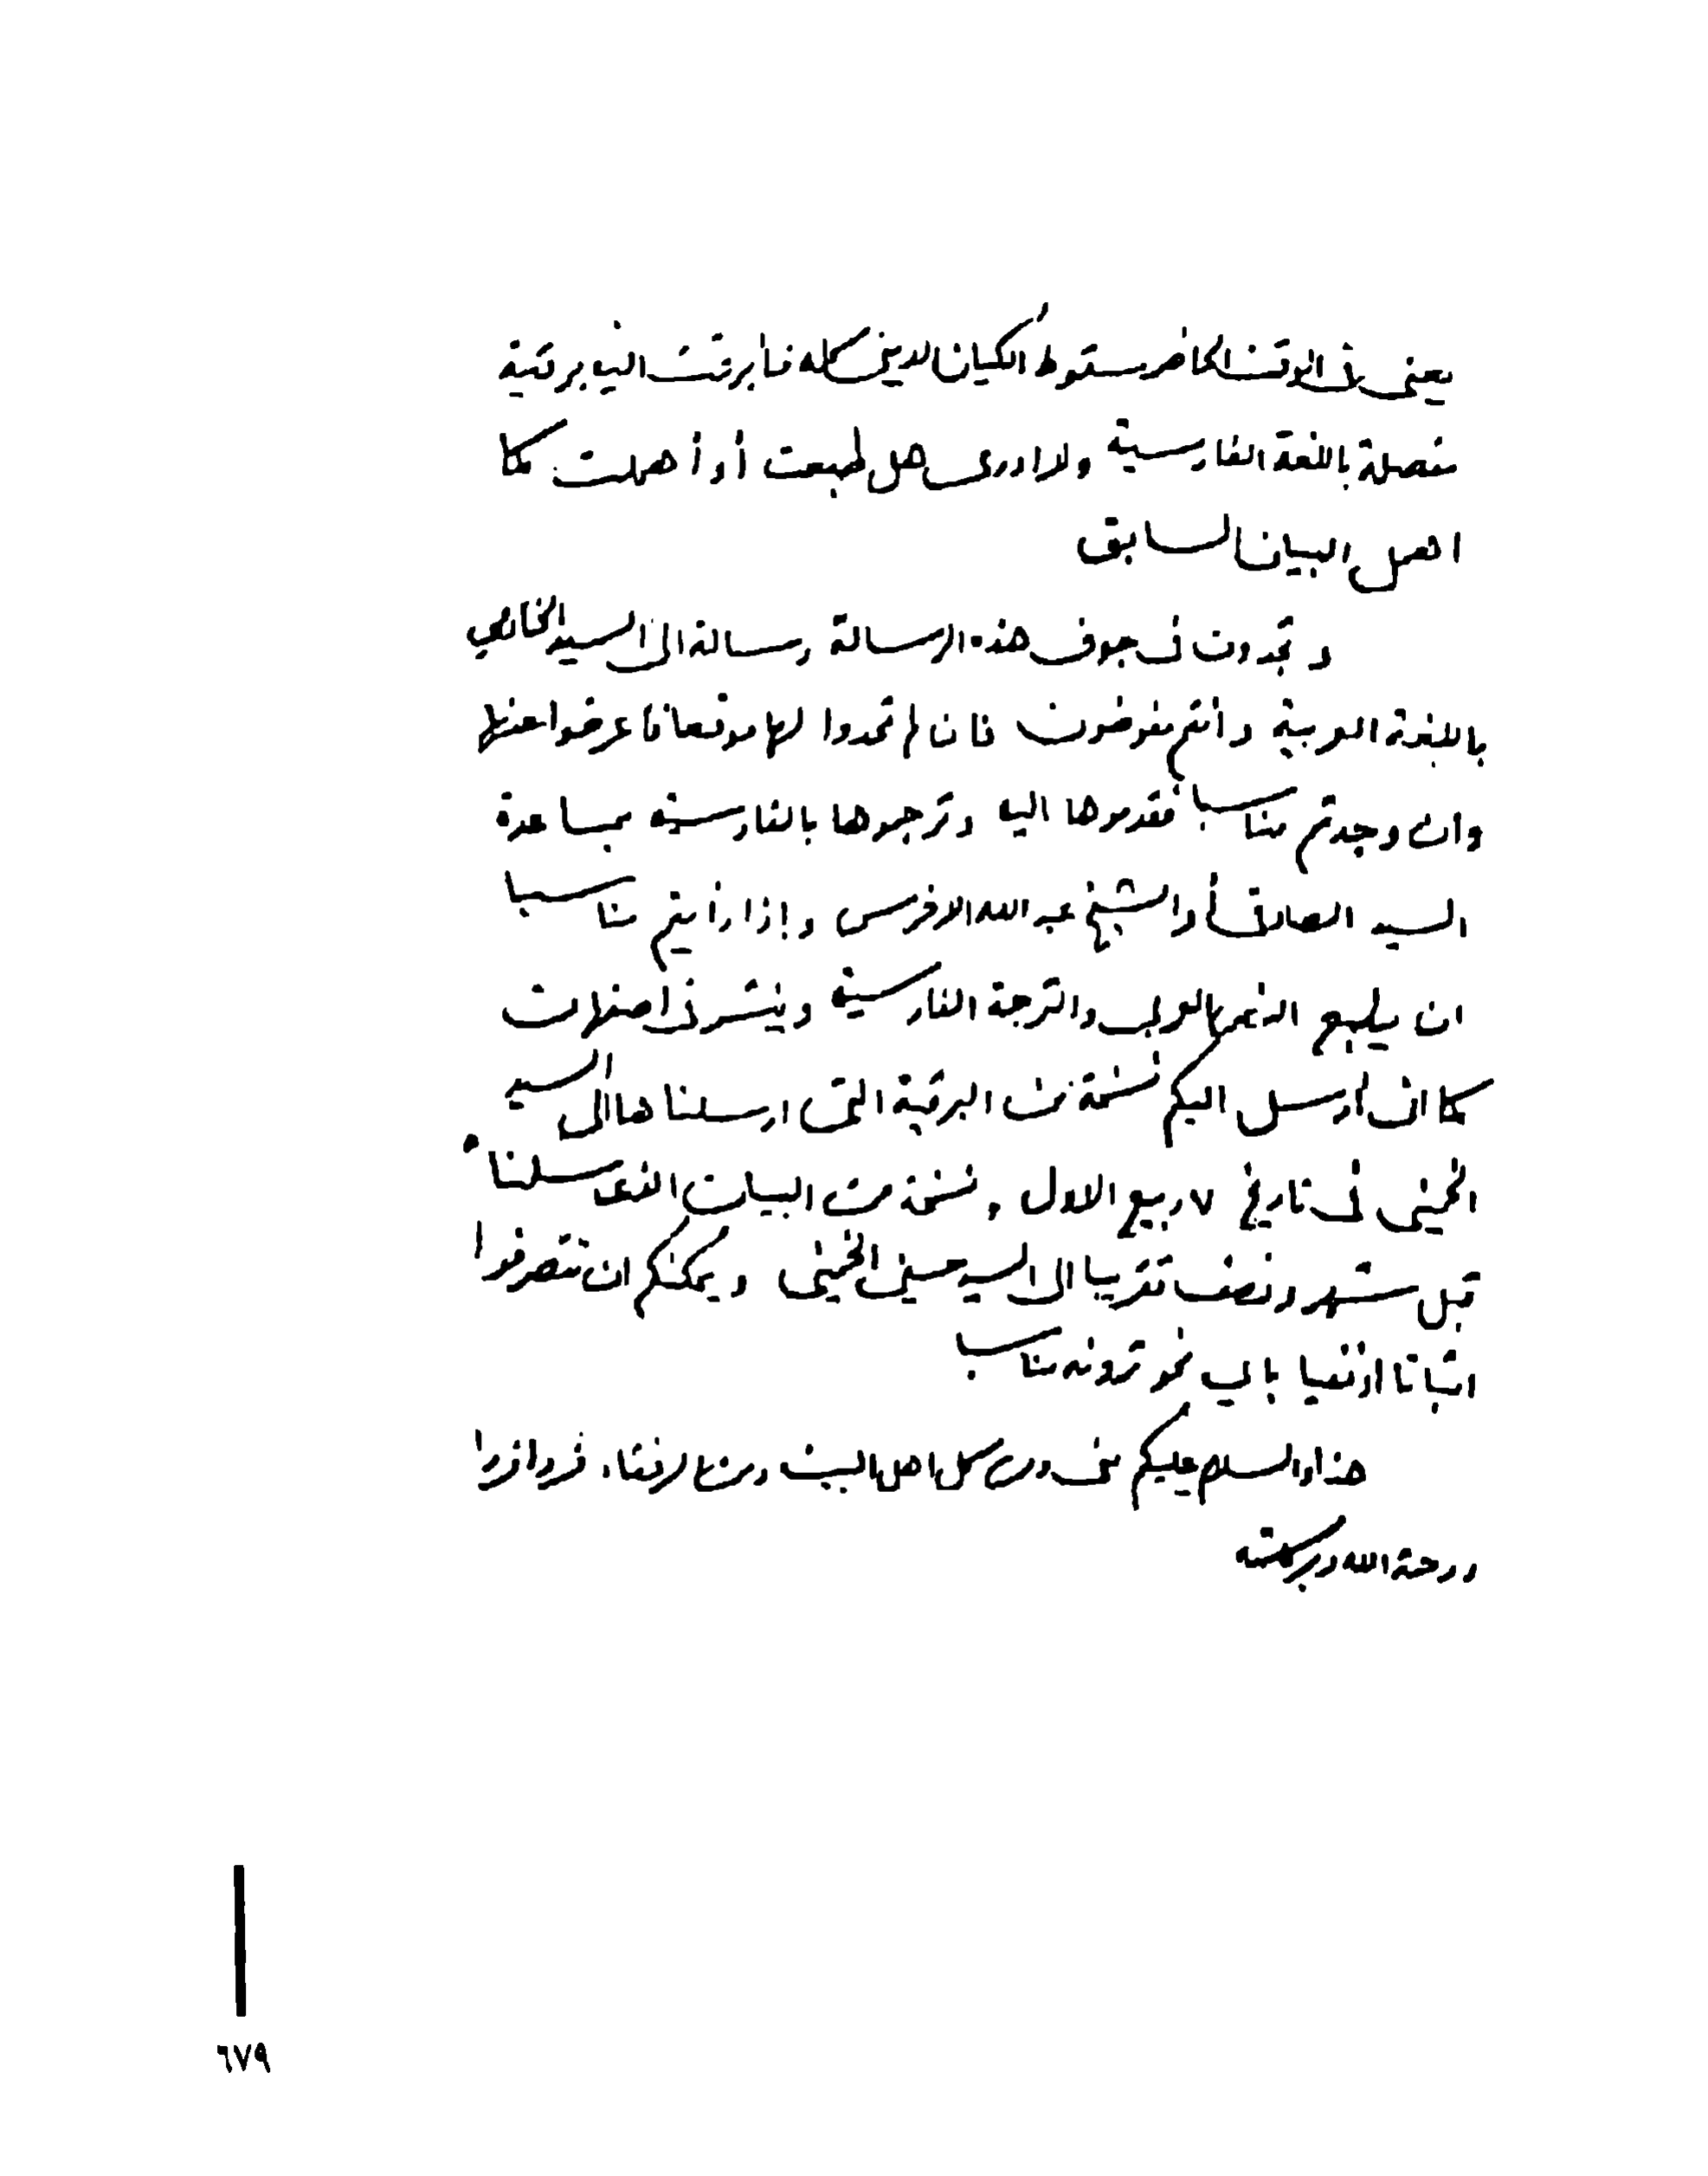 يعني في الوقت الحاضر سقوط الكيان الديني كله فأبرقت اليه برقية
مفصلة باللغة الفارسية ولا ادري هل طبعت أو أهملت كما
اهمل البيان السابق
وتجدون في جوف هذه الرسالة رسالة الى السيد الخادمي
باللغة العربية وانتم مفوضون فان لم تجدوا لها موقعا فأعرضوا عنها
وان وجدتم مناسبا فقدموها اليه وترجموها بالفارسية بمساعدة
السيد الصادق أو الشيخ عبد الله الافرمس وإذا رأيتم مناسبا
ان يطبع النص العربي والترجمة الفارسية وينشر في اصفهان
كما ان أرسل اليكم نسخة من البرقية التي ارسلناها الى السيد
الخميني في تاريخ ٧ ربيع الاول ونسخة من البيان الذي ارسلناه
قبل شهر ونصف تقريبا الى السيد حسين الخميني ويمكنكم ان تتصرفوا
اثباتا او نفيا بأي نحو ترونه مناسبا
هذا والسلام عليكم مني ومن كل اهل البيت ومن الرفقاء فردا فردا
ورحمة الله وبركاته
٦٧٩